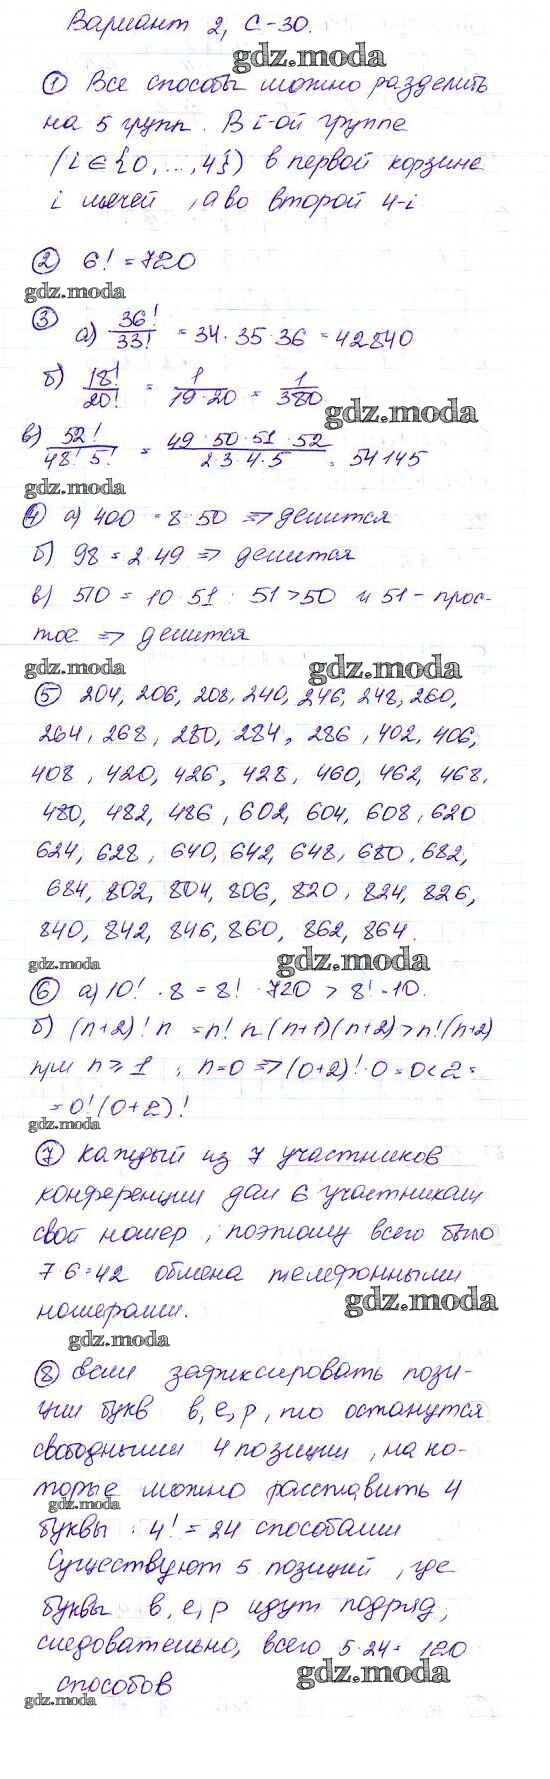 Вариант 2, С-30.
gdz.moda
① Все способы можно разделить
на 5 групп. В i-ой группе
(i ∈ {0, ..., 4}) в первой корзине
i мячей, а во второй 4-i
② 6! = 720
gdz.moda
③ а) 36!/33! = 34 · 35 · 36 = 42840
б) 18!/20! = 1/(19 · 20) = 1/380
gdz.moda
в) 52!/(48! 5!) = (49 · 50 · 51 · 52)/(2 · 3 · 4 · 5) = 54145
gdz.moda
④ а) 400 = 8 · 50 => делится
б) 98 = 2 · 49 => делится
в) 510 = 10 · 51 : 51 > 50 и 51 - прос-
тое => делится
gdz.moda gdz.moda
⑤ 204, 206, 208, 240, 246, 248, 260,
264, 268, 280, 284, 286, 402, 406,
408, 420, 426, 428, 460, 462, 468,
480, 482, 486, 602, 604, 608, 620
624, 628, 640, 642, 648, 680, 682,
684, 802, 804, 806, 820, 824, 826,
840, 842, 846, 860, 862, 864.
gdz.moda gdz.moda
⑥ а) 10! · 8 = 8! · 720 > 8! · 10.
б) (n+2)! n = n! n (n+1)(n+2) > n!(n+2)
при n ≥ 1 ; n=0 => (0+2)! · 0 = 0 < 2 =
= 0! (0+2)!
gdz.moda
⑦ Каждый из 7 участников
конференции дал 6 участникам
свой номер, поэтому всего было
7 · 6 = 42 обмена телефонными
номерами.
gdz.moda
gdz.moda
⑧ Если зафиксировать пози-
ции букв в, е, р, то останутся
свободными 4 позиции, на ко-
торые можно расставить 4
gdz.moda
буквы 4! = 24 способами
Существуют 5 позиций, где
буквы в, е, р идут подряд,
следовательно, всего 5 · 24 = 120
способов
gdz.moda
gdz.moda